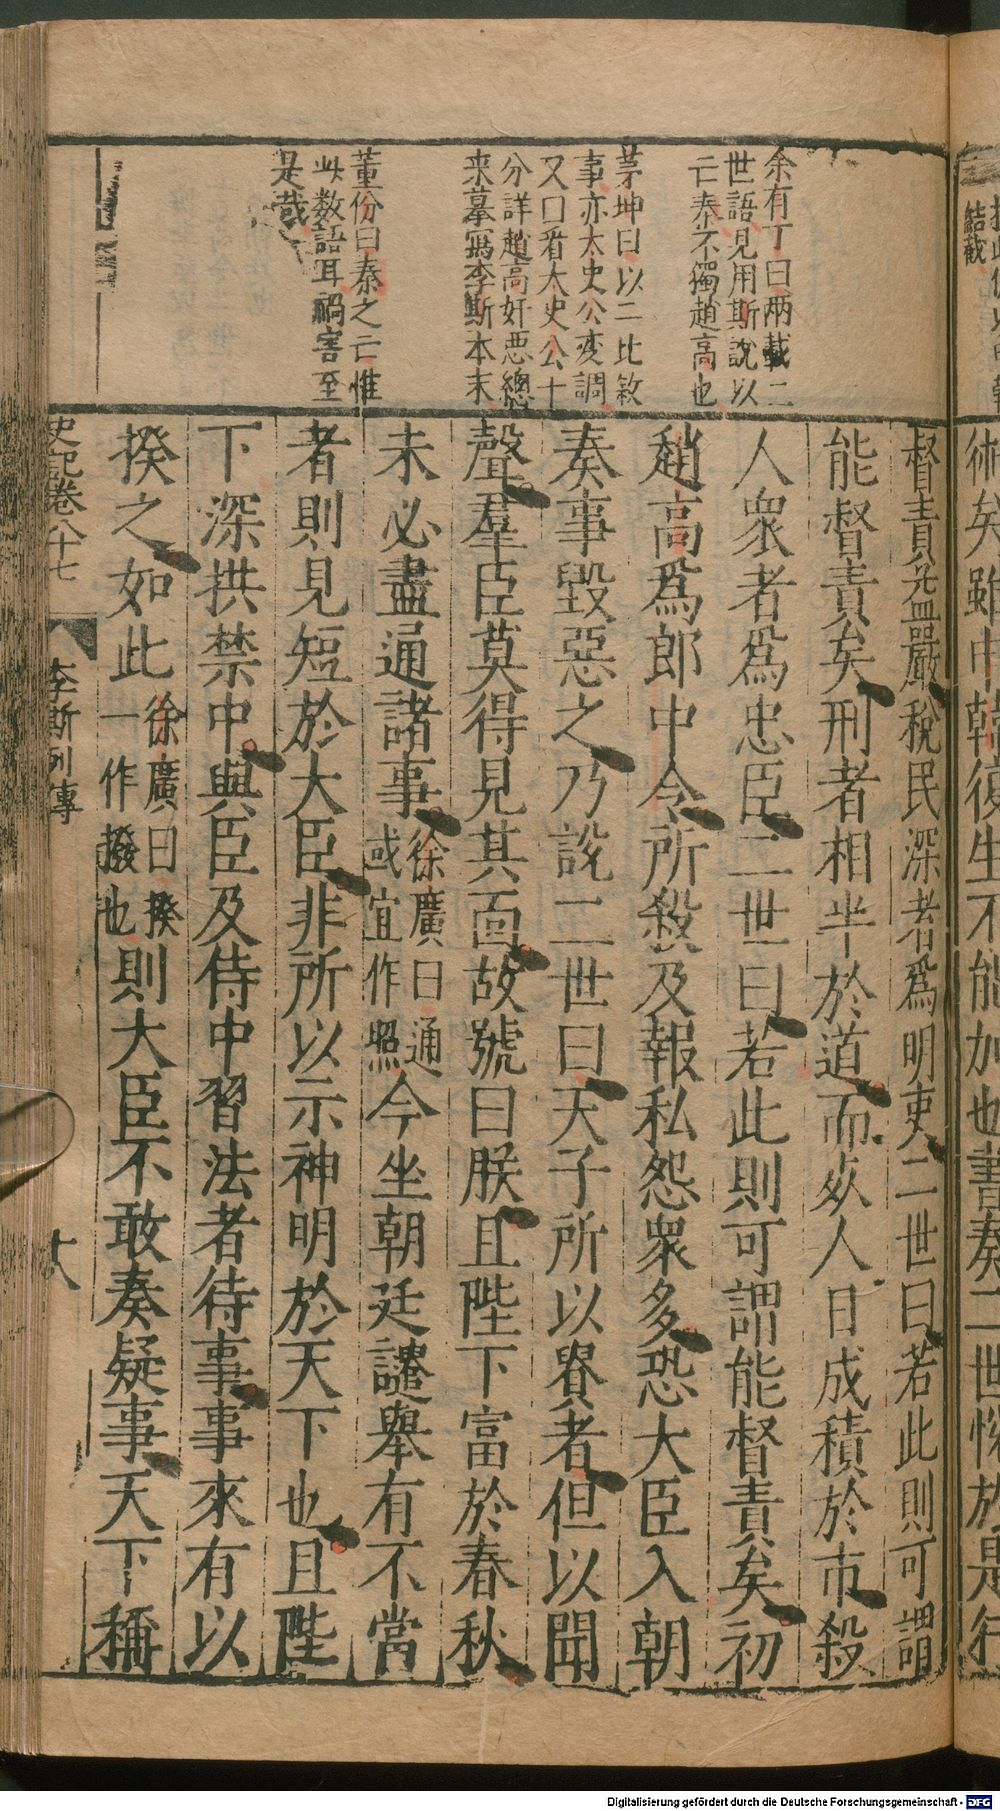 余有丁曰兩載二
世語見用斯說以
亡秦不獨趙高也
茅坤曰以二比敘
事亦太史公変調
又曰看太史公十
分詳趙高奸惡總
来摹寫李斯本末
董份曰秦之亡惟
此数語耳禍害至
是哉
術矣雖申韓復生不能加也書奏二世悅於是行
督責益嚴稅民深者爲明吏二世曰若此則可謂
能督責矣刑者相半於道而死人日成積於市殺
人衆者爲忠臣二世曰若此則可謂能督責矣初
趙高爲郎中令所殺及報私怨衆多恐大臣入朝
奏事毀惡之乃說二世曰天子所以貴者但以聞
聲羣臣莫得見其面故號曰朕且陛下富於春秋
未必盡通諸事徐廣曰通或宜作照今坐朝廷譴舉有不當
者則見短於大臣非所以示神明於天下也且陛
下深拱禁中與臣及侍中習法者待事事來有以
揆之如此徐廣曰揆一作撥也則大臣不敢奏疑事天下稱
史記卷八十七
李斯列傳
十八
結截
Digitalisierung gefördert durch die Deutsche Forschungsgemeinschaft - DFG